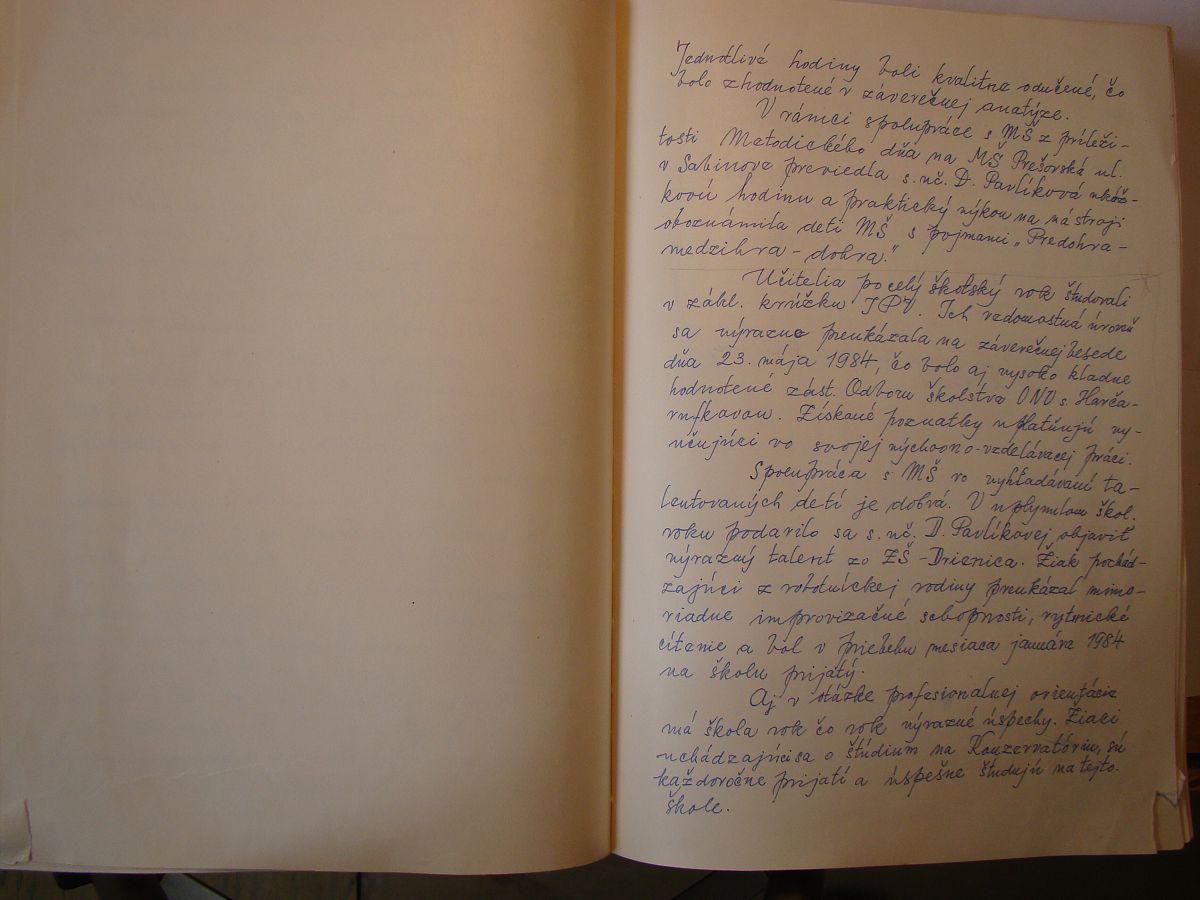 Jednotlivé hodiny boli kvalitne odučené, čo
bolo zhodnotené v záverečnej analýze.
V rámci spolupráce s MŠ z príleži-
tosti Metodického dňa na MŠ Prešovská ul.
v Sabinove previedla s. uč. D. Pavlíková ukáž-
kovú hodinu a praktický výkon na nástroji
oboznámila deti MŠ s pojmami „Predohra-
medzihra-dohra."
Učitelia po celý školský rok študovali
v zákl. krúžku JPV. Ich vzdomostná úroveň
sa výrazne preukázala na záverečnej besede
dňa 23. mája 1984, čo bolo aj vysoko kladne
hodnotené zást. Odboru školstva ONV s. Harča-
rufkavou. Získané poznatky uplatňujú vy-
učujúci vo svojej výchovno-vzdelávacej práci.
Spolupráca s MŠ vo vyhľadávaní ta-
lentovaných detí je dobrá. V uplynulom škol.
roku podarilo sa s. uč. D. Pavlíkovej objaviť
výrazný talent zo ZŠ-Drienica. Žiak pochád-
zajúci z robotníckej rodiny preukázal mimo-
riadne improvizačné schopnosti, rytmické
cítenie a bol v priebehu mesiaca januára 1984
na školu prijatý.
Aj v otázke profesionalnej orientácie
má škola rok čo rok výrazné úspechy. Žiaci
uchádzajúci sa o štúdium na Konzervatóriu, sú
každoročne prijatí a úspešne študujú na tejto
škole.